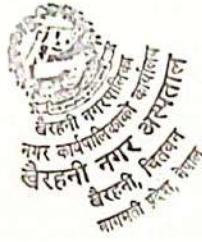 बैरहनी नगरपालिका
नगर कार्यपालिकाको कार्यालय
बैरहनी नगर अस्पताल
बैरहनी, चितवन
बागमती प्रदेश, नेपाल